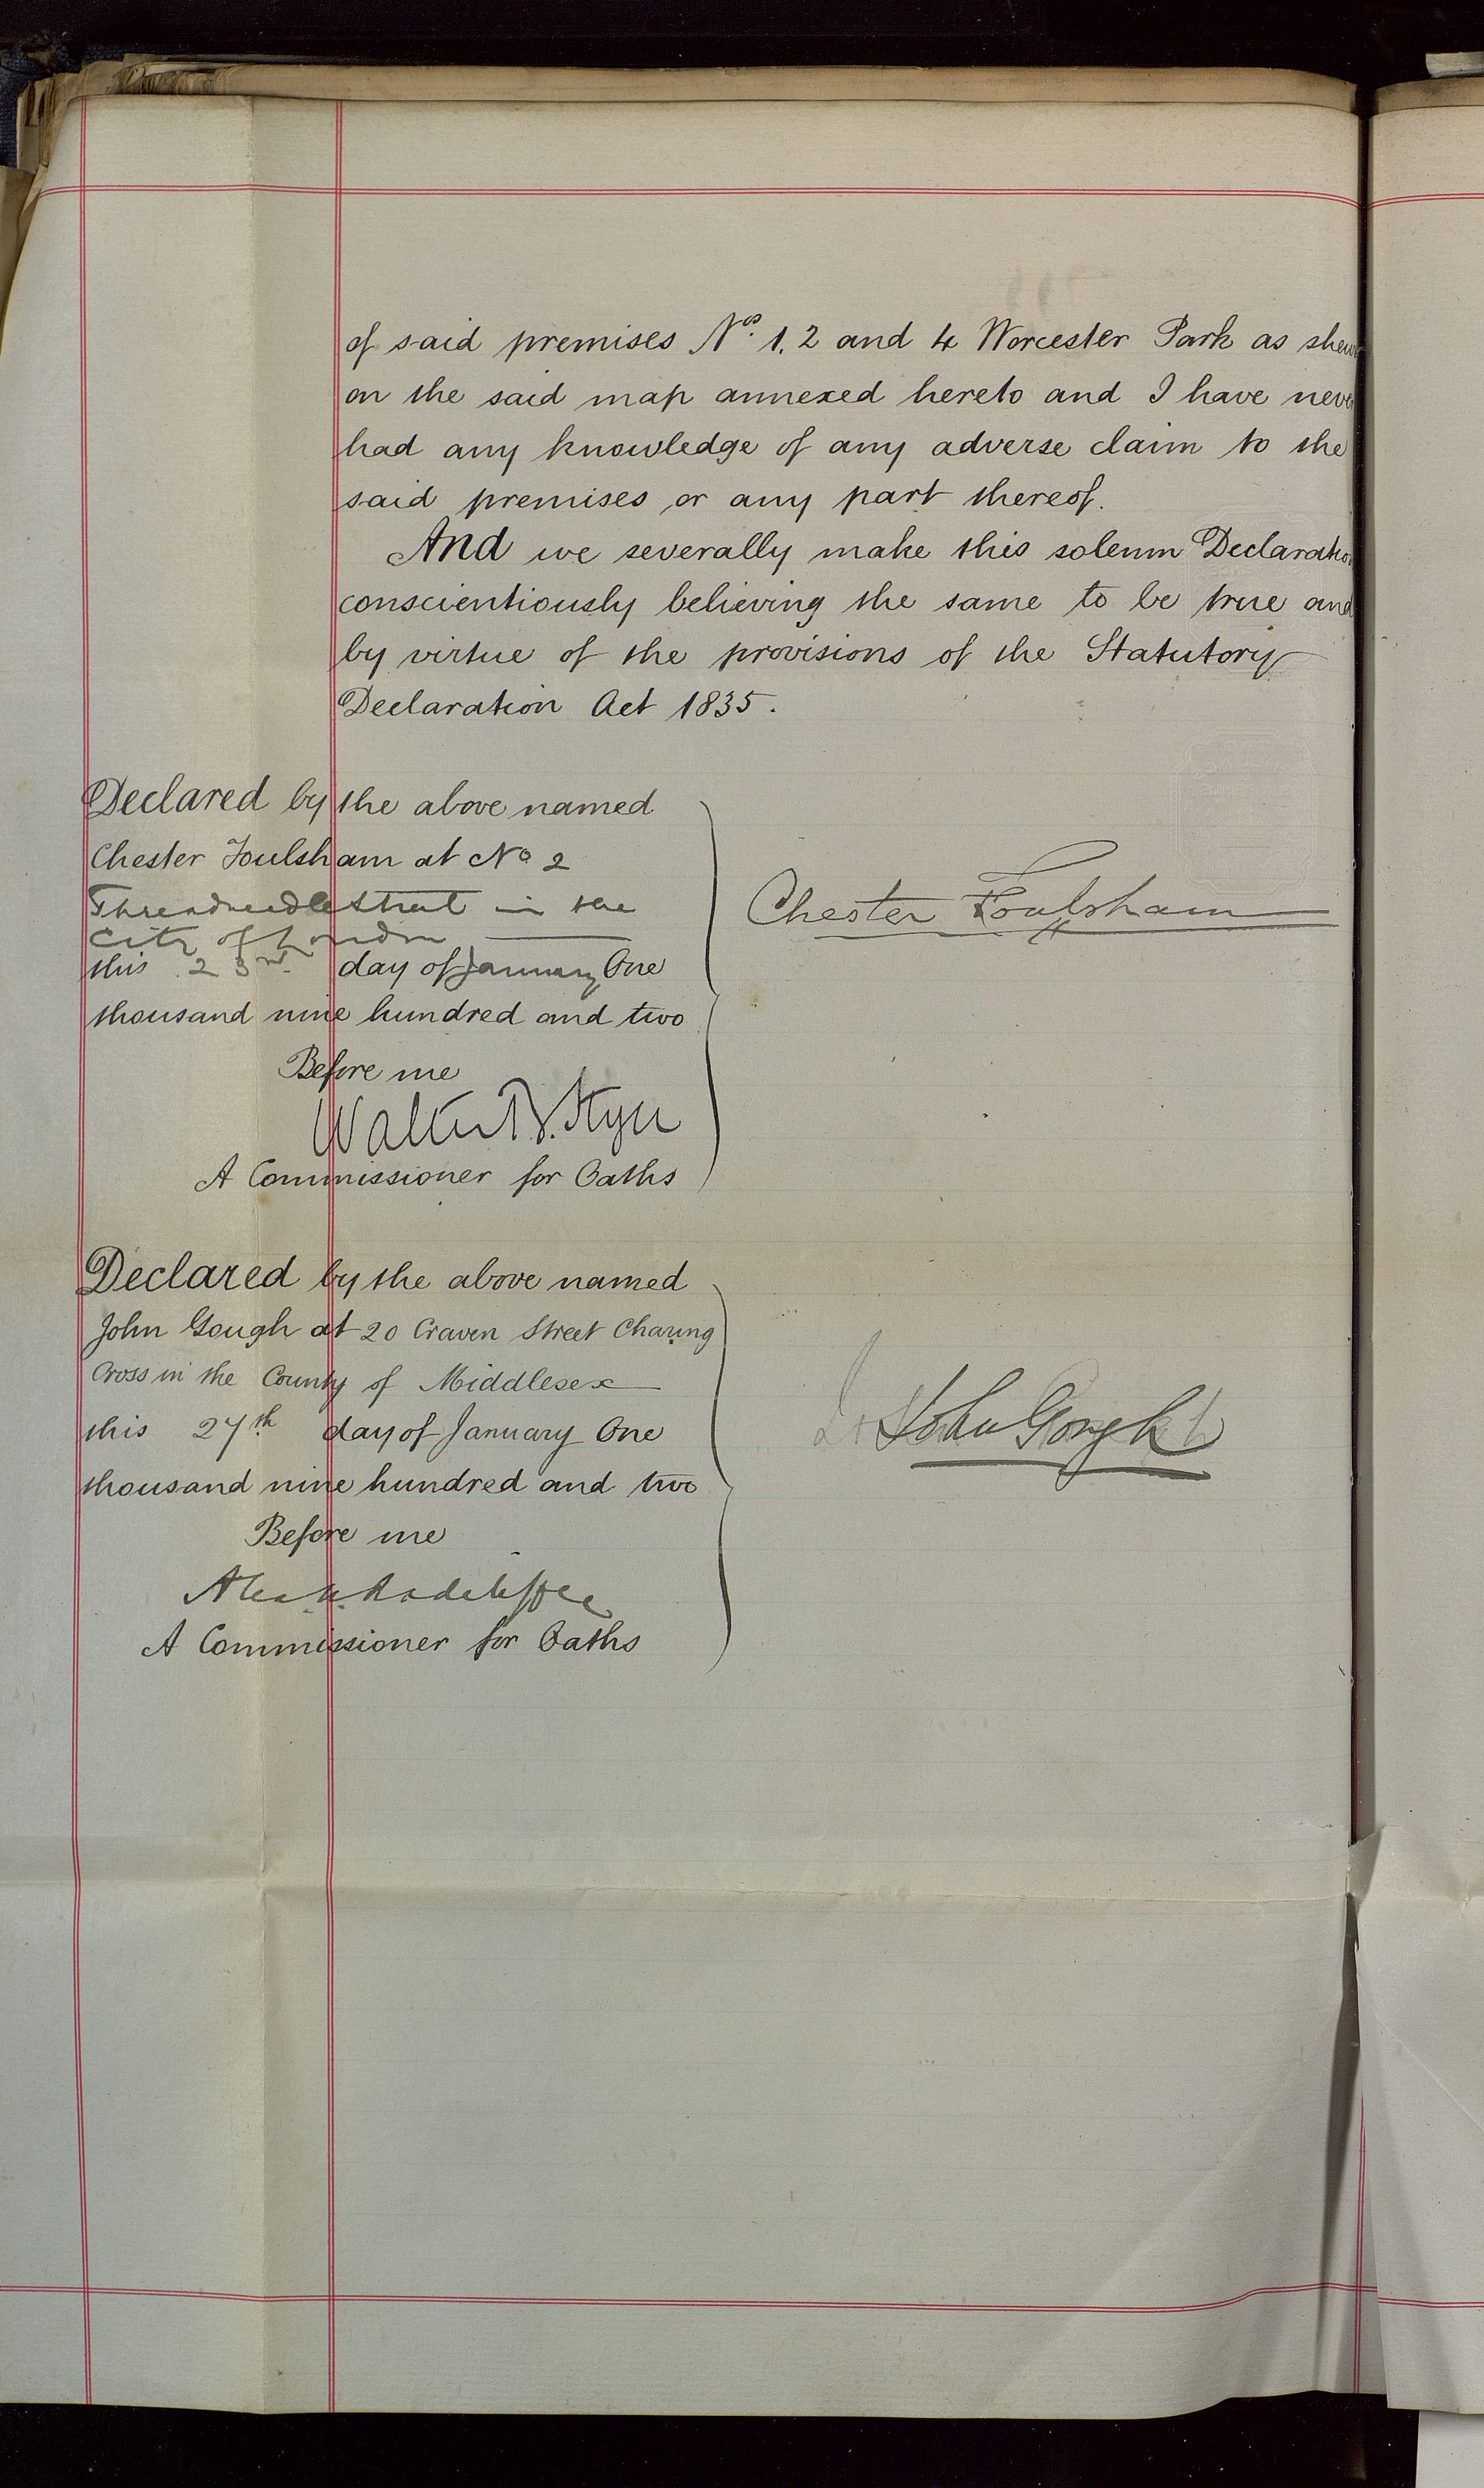 of said premises Nos. 1, 2 and 4 Worcester Park as shewn
on the said map annexed hereto and I have never
had any knowledge of any adverse claim to the
said premises or any part thereof.
And we severally make this solemn Declaration
conscientiously believing the same to be true and
by virtue of the provisions of the Statutory
Declaration Act 1835.
Declared by the above named
Chester Foulsham at No 2
Threadneedle Street in the
City of London
this 23rd day of January One
thousand nine hundred and two
Before me
Walter
A Commissioner for Oaths
Chester Foulsham
Declared by the above named
John Gough at 20 Craven Street Charing
Cross in the County of Middlesex
this 27th day of January One
thousand nine hundred and two
Before me
Radcliffe
A Commissioner for Oaths
John Gough